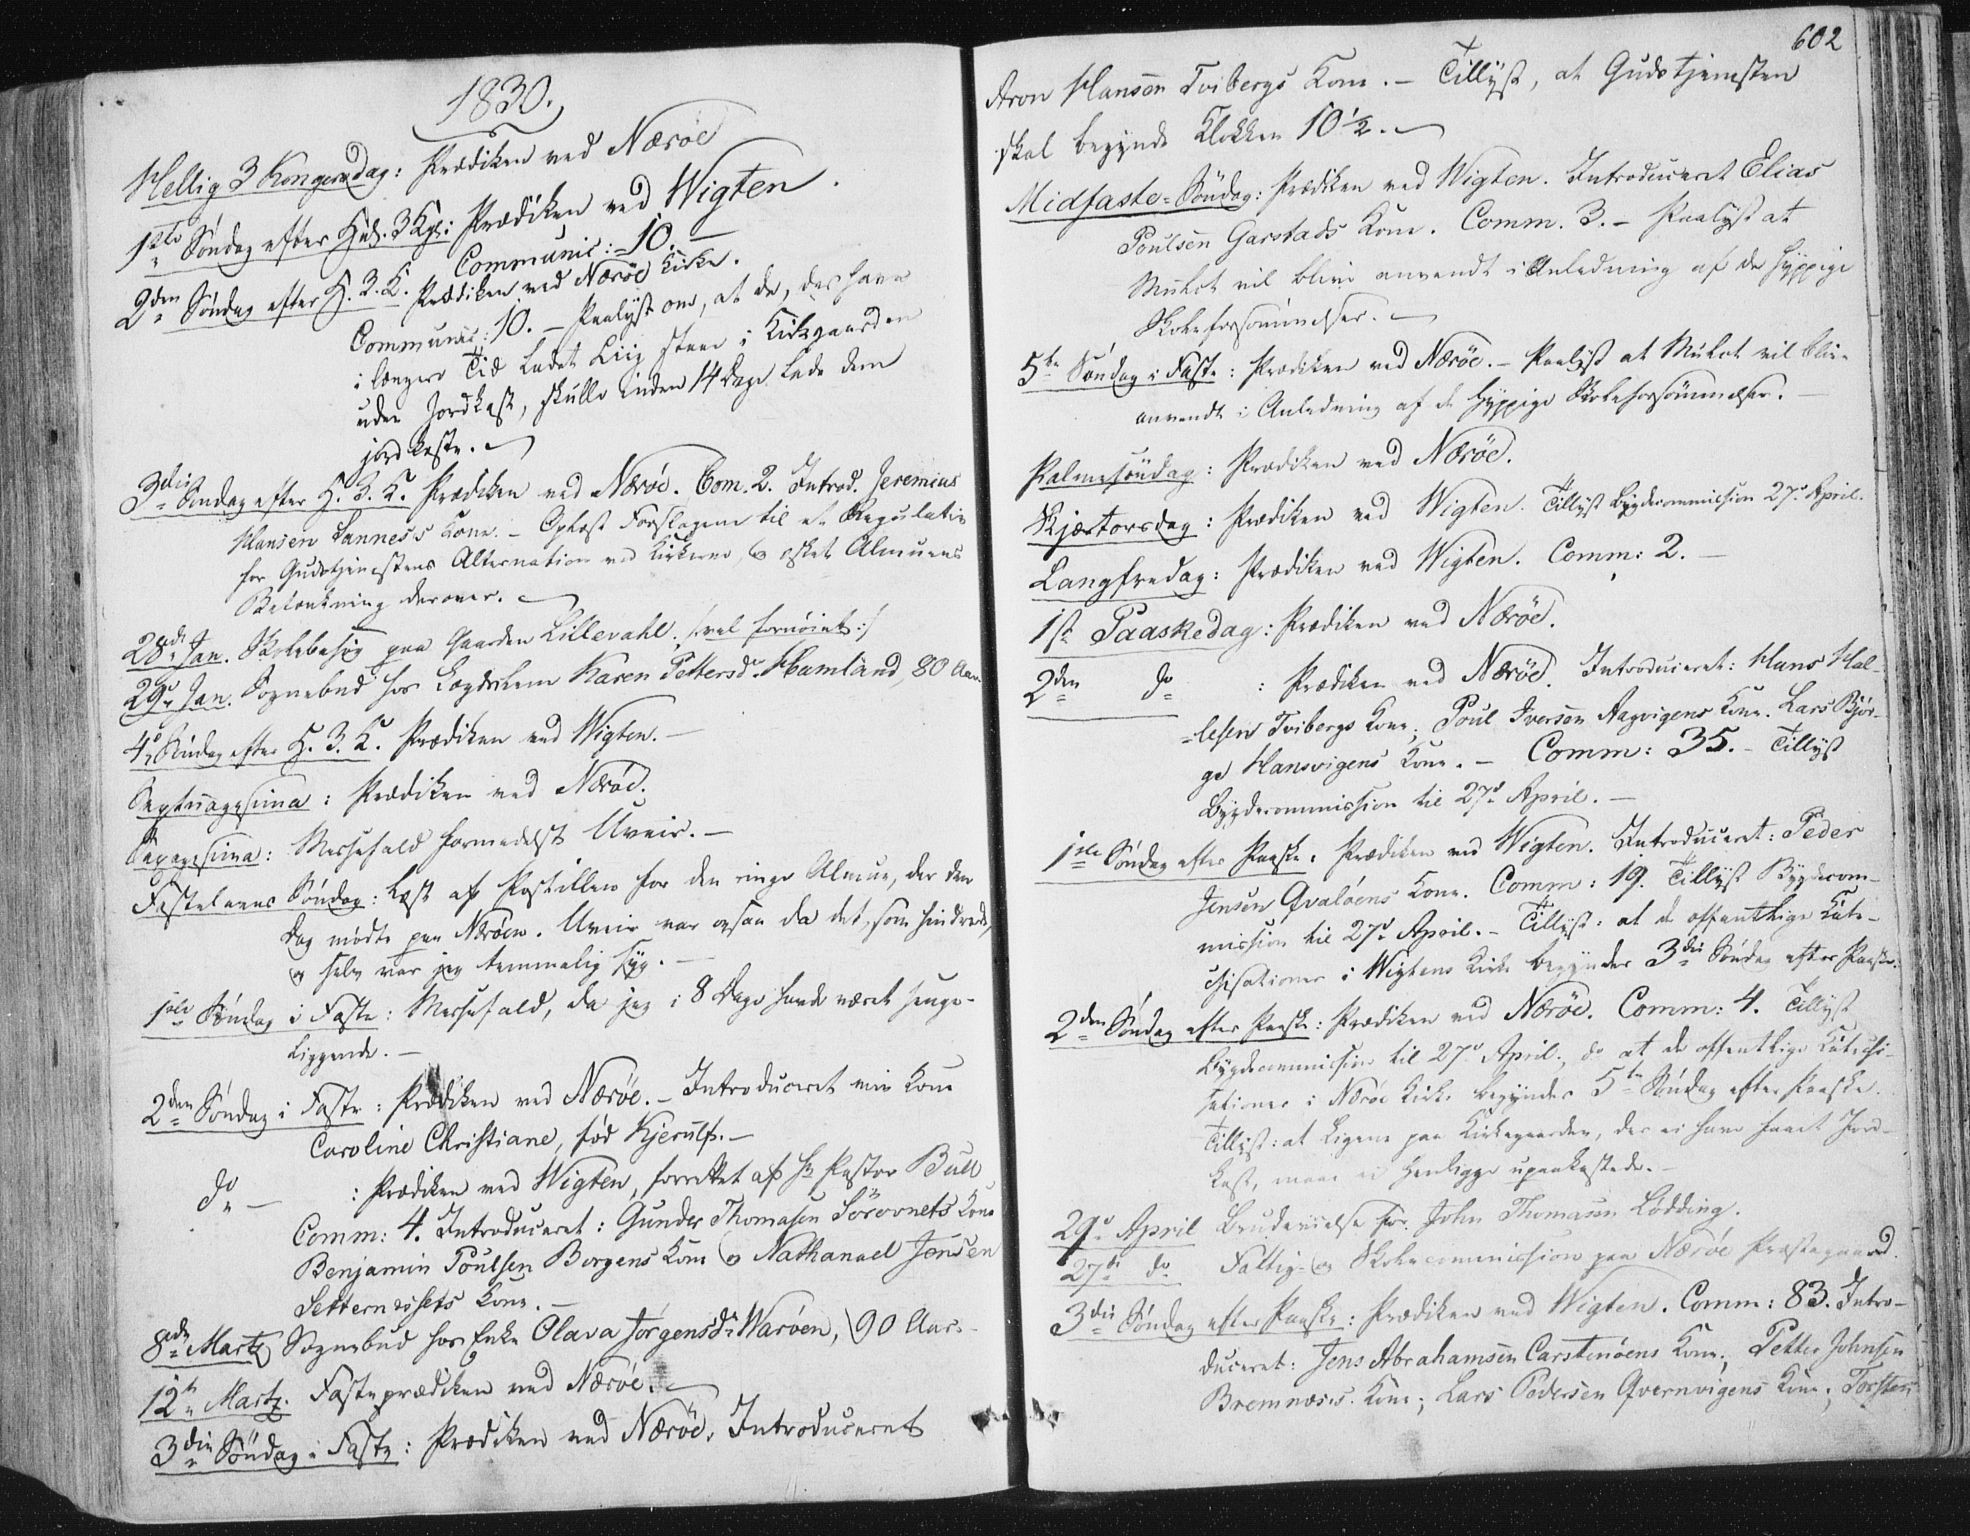 1830.
Hellig 3 Kongersdag: Prædiken ved Nærøe
1ste Søndag efter Hel. 3 Kgr: Prædiken ved Wigten.
Communic: 10. —
2den Søndag efter H. 3. K. Prædiken ved Nærøe Kirke.
Communic: 10. — Paalyst om, at de, der have
i længere Tid ladet Liig staae i Kirkegaarden
uden Jordkast, skulle inden 14 Dage lade dem
jordkaste. —
3die Søndag efter H. 3. K. Prædiken ved Nærøe. Com. 2. Introd. Jeremias
Hansen Hannes's Kone. — Oplæst Forslagene til et Regulativ
for Gudstjenestens Alternation ved Kirkerne og æsket Almuens
Betænkning derover. —
28de Jan. Skolebesøg paa Gaarden Lillevahl. /: vel fornøiet :/
29de Jan. Sognebud hos Lægdslem Karen Pettersdr Hamland, 80 Aar.
4de Søndag efter H. 3. K. Prædiken ved Wigten. —
Septuagesima: Prædiken ved Nærøe.
Sexagesima: Messefald formedelst Uveir. —
Fastelavns Søndag: Læst af Postillen for den ringe Almue, der den
Dag mødte paa Nærøen. Uveir var ogsaa da det, som hindrede,
og selv var jeg temmelig syg. —
1ste Søndag i Faste: Messefald, da jeg i 8 Dage havde været senge-
liggende. —
2den Søndag i Faste: Prædiken ved Nærøe. — Introduceret min Kone
Caroline Christiane, fød Kjerulf. —
do — : Prædiken ved Wigten, forrettet af Hr Pastor Bull
Comm: 4. Introduceret: Gunder Thomasen Sörovnets Kone
Benjamin Poulsen Borgens Kone og Nathanael Jensen
Setternessets Kone. —
8de Martz Sognebud hos Enke Olava Jörgensdr Waröen, 90 Aar. —
12te Martz. Fasteprædiken ved Nærøe. —
3die Søndag i Faste: Prædiken ved Nærøe. Introduceret
602
Aron Hansen Tvibergs Kone. — Tillyst, at Gudstjenesten
skal begynde Klokken 10 1/2. —
Midfaste-Söndag: Prædiken ved Wigten. Introduceret Elias
Poulsen Garstads Kone. Comm. 3. — Paalyst at
Mulct vil blive anvendt i Anledning af de hyppige
Skoleforsømmelser. —
5te Søndag i Faste: Prædiken ved Nærøe. — Paalyst at Mulct vil blive
anvendt i Anledning af de hyppige Skoleforsømmelser. —
Palmesöndag: Prædiken ved Nærøe.
Skjærtorsdag: Prædiken ved Wigten. Tillyst Bygdecommission 27de April.
Langfredag: Prædiken ved Wigten. Comm: 2. —
1ste Paaskedag: Prædiken ved Nærøe.
2den do : Prædiken ved Nærøe. Introduceret: Hans Hal-
lesen Tvibergs Kone; Poul Iversen Aagvigens Kone. Lars Bjør-
ge Hansvigens Kone. — Comm: 35. — Tillyst
Bygdecommission til 27de April. —
1ste Søndag efter Paaske: Prædiken ved Wigten. Introduceret: Peder
Jensen Qvaløens Kone. Comm: 19. Tillyst Bygdecom-
mission til 27de April. — Tillyst: at de offentlige Kate-
chisationer i Wigtens Kirke begynder 3die Søndag efter Paaske.
2den Søndag efter Paaske: Prædiken ved Nærøe. Comm: 4. Tillyst
Bygdecommission til 27de April; do at de offentlige Katechi-
sationer i Nærøe Kirke begynder 5te Søndag efter Paaske.
Tillyst: at Ligene paa Kirkegaarden, der ei have faaet Jord-
kast, maae ei henligge upaakastede. —
29de April Brudevielse for John Thomasen Lödding.
27de do Fattig- og Skolecommission paa Nærøe Præstegaard.
3die Søndag efter Paaske: Prædiken ved Wigten. Comm: 83. Intro-
duceret: Jens Abrahamsen Carstenöens Kone; Petter Johnsen
Bremnæses Kone; Lars Pedersen Qvernvigens Kone; Torsten